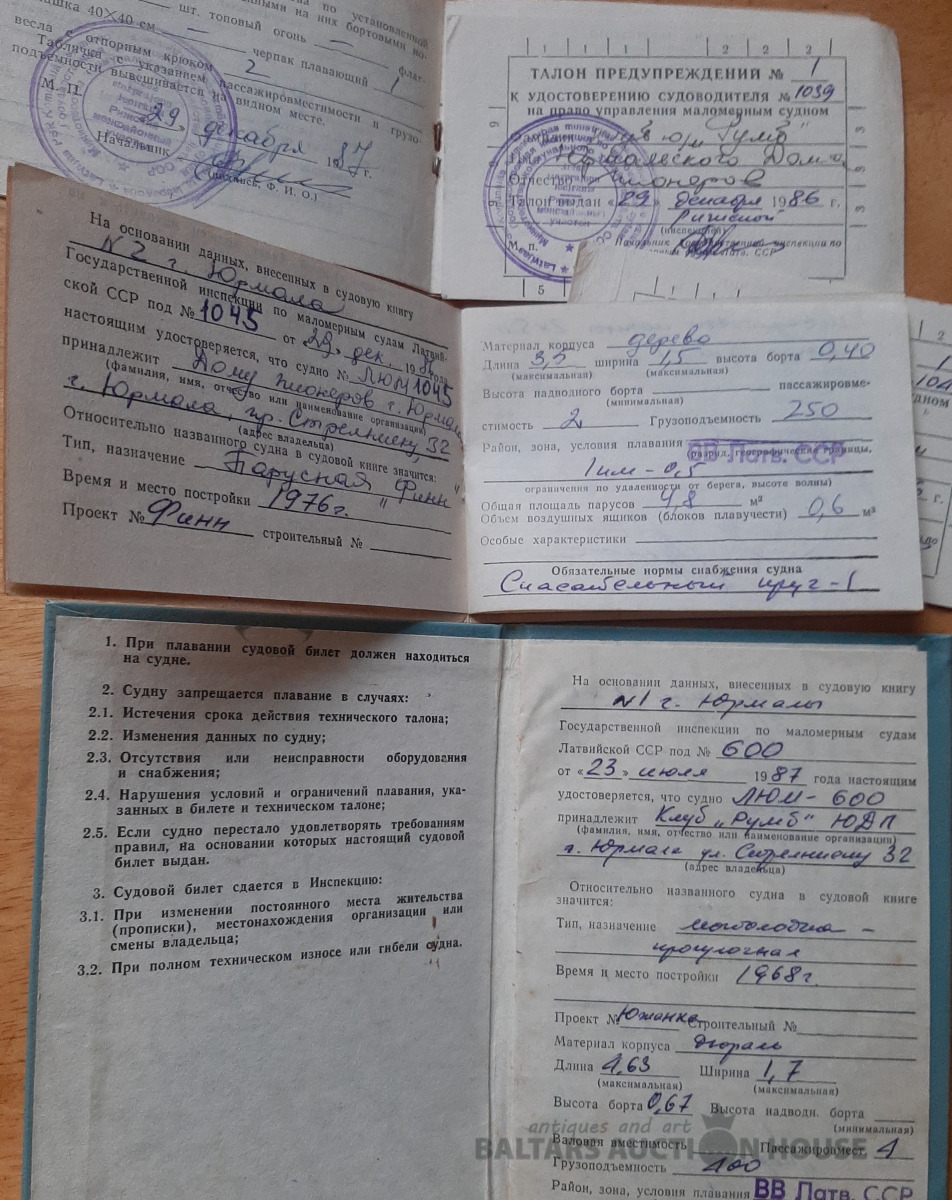 по установленной
шт. топовый огонь — ными на них бортовыми но-
ашка 40×40 см — черпак плавающий 1 флаг-
весла с отпорным крюком 2
Табличка с указанием пассажировместимости и грузо-
подъемности вывешивается на видном месте.
М. П. 29 декабря 1987 г.
Начальник
(подпись, Ф. И. О.)
ТАЛОН ПРЕДУПРЕЖДЕНИЙ № 1
К УДОСТОВЕРЕНИЮ СУДОВОДИТЕЛЯ № 1039
на право управления маломерным судном
"Румб"
Юрмальского Дома
Отчество пионеров
Талон выдан «29» декабря 1986 г.
Рижской
(инспекцией)
М. п.
На основании данных, внесенных в судовую книгу
N2 г. Юрмала
Государственной инспекции по маломерным судам Латвий-
ской ССР под № 1045 от 29 дек. 1986 года
настоящим удостоверяется, что судно № ЛЮМ 1045
принадлежит Дому пионеров г. Юрмалы
(фамилия, имя, отчество или наименование организации)
г. Юрмала, пр. Стрелниеку 32
(адрес владельца)
Относительно названного судна в судовой книге значится:
Тип, назначение Парусная "Финн"
Время и место постройки 1976 г.
Проект № Финн строительный №
Материал корпуса дерево
Длина 3,5 ширина 1,5 высота борта 0,40
(максимальная) (максимальная)
Высота надводного борта — пассажировме-
(минимальная)
стимость 2 Грузоподъемность 250
Район, зона, условия плавания ВВ Латв. ССР
(разряд, географические границы,
1 км - 0,5
ограничения по удаленности от берега, высоте волны)
Общая площадь парусов 4,8 м²
Объем воздушных ящиков (блоков плавучести) 0,6 м³
Особые характеристики
Обязательные нормы снабжения судна
Спасательный круг - 1
1. При плавании судовой билет должен находиться
на судне.
2. Судну запрещается плавание в случаях:
2.1. Истечения срока действия технического талона;
2.2. Изменения данных по судну;
2.3. Отсутствия или неисправности оборудования
и снабжения;
2.4. Нарушения условий и ограничений плавания, ука-
занных в билете и техническом талоне;
2.5. Если судно перестало удовлетворять требованиям
правил, на основании которых настоящий судовой
билет выдан.
3. Судовой билет сдается в Инспекцию:
3.1. При изменении постоянного места жительства
(прописки), местонахождения организации или
смены владельца;
3.2. При полном техническом износе или гибели судна.
На основании данных, внесенных в судовую книгу
N1 г. Юрмалы
Государственной инспекции по маломерным судам
Латвийской ССР под № 600
от «23» июля 1987 года настоящим
удостоверяется, что судно ЛЮМ - 600
принадлежит Клуб „Румб" ЮДП
(фамилия, имя, отчество или наименование организации)
г. Юрмала ул. Стрелниеку 32
(адрес владельца)
Относительно названного судна в судовой книге
значится:
Тип, назначение мотолодка -
прогулочная
Время и место постройки 1968 г.
Проект № Южанка Строительный №
Материал корпуса дюраль
Длина 4,63 Ширина 1,7
(максимальная) (максимальная)
Высота борта 0,67 Высота надводн. борта
(минимальная)
antiques and art
BALTARS AUCTION HOUSE
Валовая вместимость Пассажировмест. 4
Грузоподъемность 400
Район, зона, условия плавания ВВ Латв. ССР